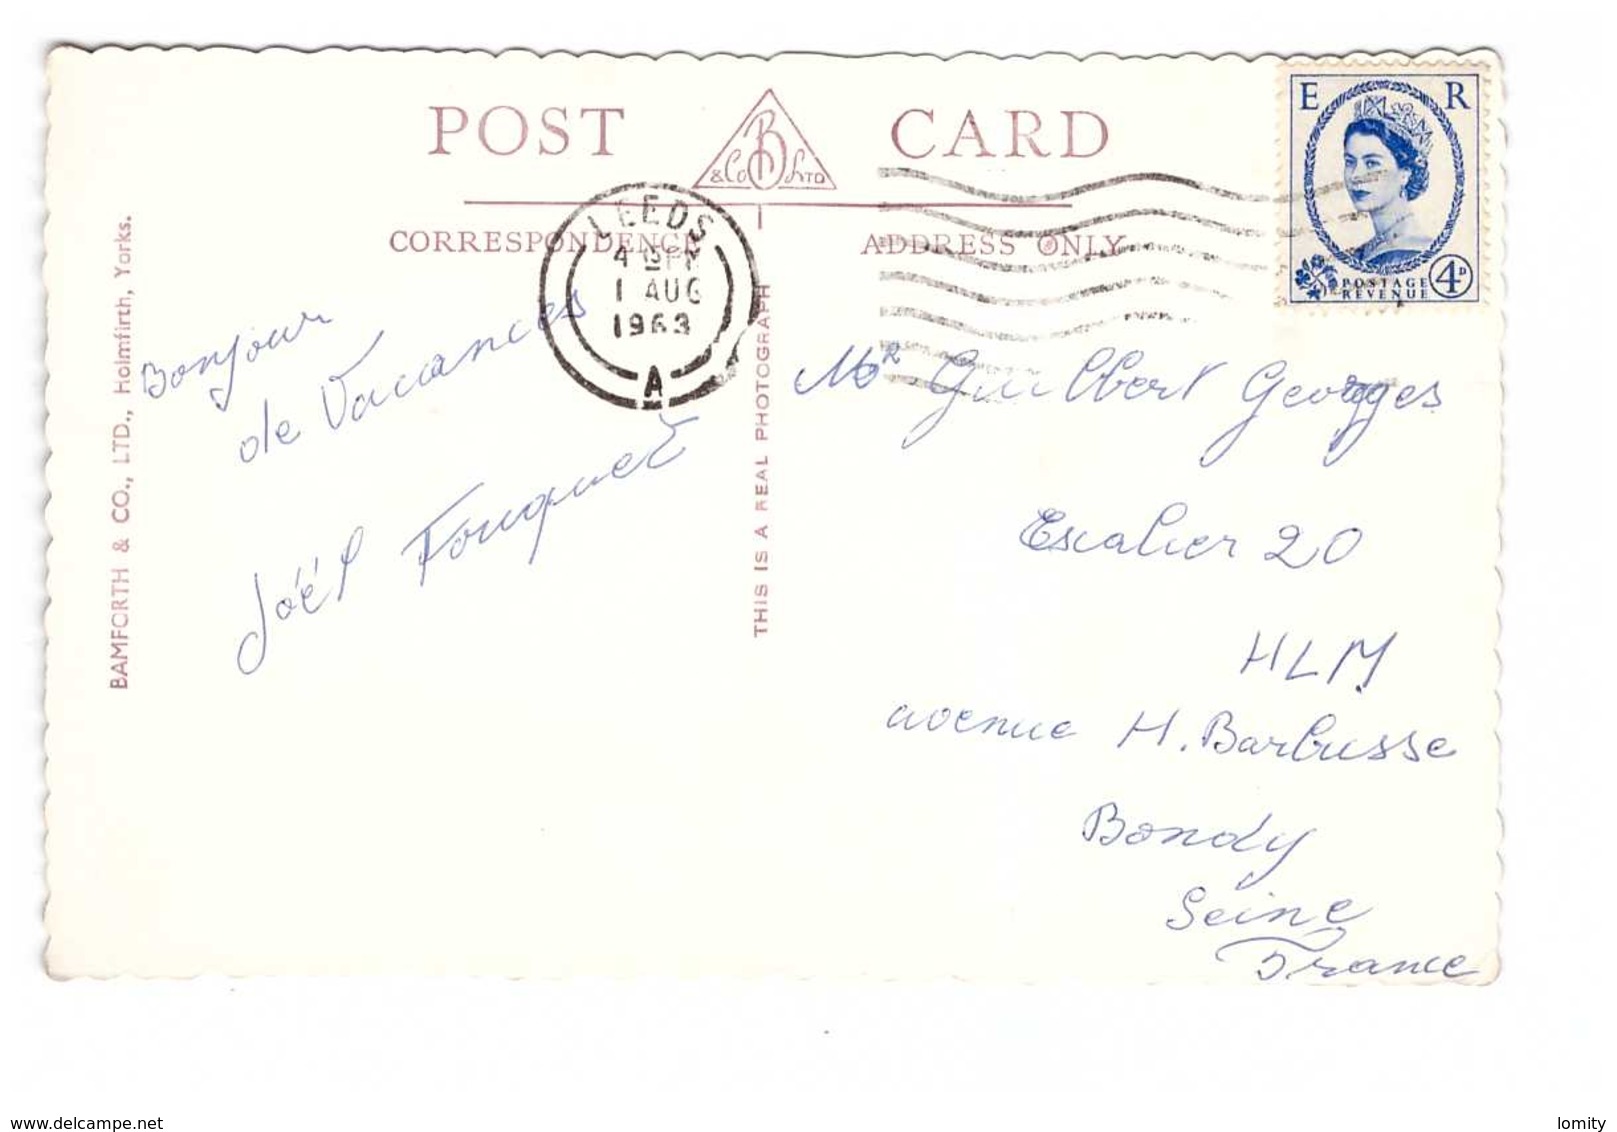 POST CARD
B
& Co LTD
CORRESPONDENCE
ADDRESS ONLY
E R
POSTAGE
REVENUE
4D
LEEDS
4 PM
1 AUG
1963
A
BAMFORTH & CO., LTD., Holmfirth, Yorks.
THIS IS A REAL PHOTOGRAPH
Bonjour
de Vacances
Joël Fouquet
Mr Guilbert Georges
Escalier 20
HLM
avenue H. Barbusse
Bondy
Seine
France
delcampe.net
lomity